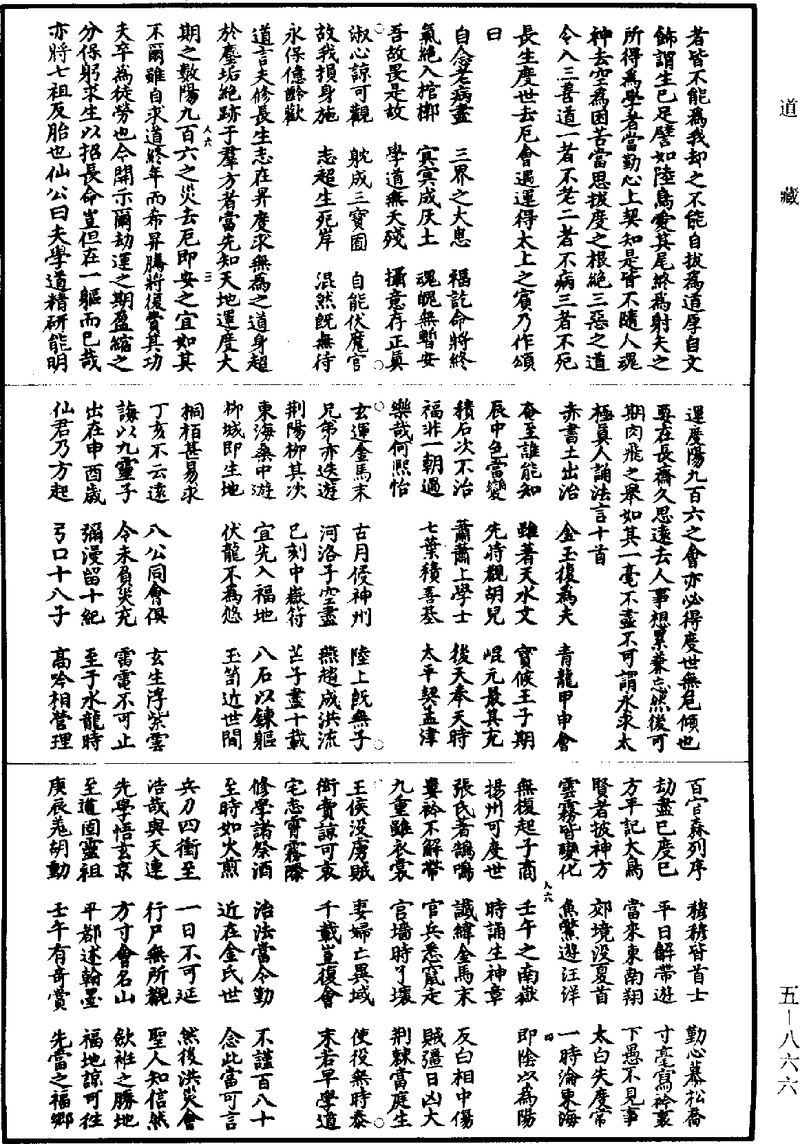 道藏
五—八六六
者皆不能為我却之不能自拔為道厚自文
飾謂生已足譬如陸鳥愛其尾終為射夫之
所得為學者當勤心上契知是皆不隨人魂
神去空為困苦當思拔度之根絕三惡之道
令入三善道一者不老二者不病三者不死
長生度世去厄會遇運得太上之賓乃作頌
曰
自念老病盡 三界之大患 福訖命將終
氣絕入棺槨 冥冥成灰土 魂魄無暫安
吾故畏是故 學道無夭殘 攝意存正真
淑心諒可觀 躭成三寶圃 自能伏魔官
故我損身施 志超生死岸 混然既無待
永保億齡歡
道言夫修長生志在昇度求無為之道身超
於塵垢絕跡于羣方者當先知天地運度大
期之數陽九百六之災去厄即安之宜如其
不爾雖自求道終年而希昇騰將復費其功
夫卒為徒勞也今開示爾劫運之期盈縮之
分保躬求生以招長命豈但在一軀而已哉
亦將七祖反胎也仙公曰夫學道精研能明
運度陽九百六之會亦必得度世無危傾也
要在長齋久思遠去人事想累兼忘然後可
期肉飛之舉如其一毫不盡不可謂永求太
極真人誦法言十首
赤書土出治 金玉復為夫 青龍甲申會
奄至誰能知 雖著天水文 寶候王子期
辰中色當變 先時觀胡兒 崐元最其充
積石次不治 蕭蕭上學士 後天奉天時
福非一朝過 七葉積善基 太平契孟津
樂哉何熙怡
玄運金馬末 古月侵神州 陸上既無子
兄弟亦迭遊 河洛子空盡 燕趙成洪流
荆陽柳其次 已刻中嶽符 芒子盡十載
東海桑中遊 宜先入福地 八石以鍊軀
柳城即生地 伏龍不為悠 玉笥近世間
桐栢甚易求
丁亥不云遠 八公同會俱 玄生浮紫雲
誨以九靈子 令未負災充 雷電不可止
出在申酉歲 彌漫留十紀 至于水龍時
仙君乃方起 弓口十八子 高吟相營理
百官森列序 穆穆皆首士 勤心慕松喬
劫盡已度已 平日解帶遊 寸毫寫衿裏
方平記大鳥 當來東南翔 下愚不見事
賢者披神方 郊境没夏首 太白失度常
雲霧皆變化 魚鱉遊汪洋 一時淪東海
無復起子商 壬午之南嶽 即陰以為陽
揚州可度世 時誦生神章
張氏者鵠鳴 讖緯金馬末 反白相中傷
婁衿不解帶 官兵悉竄走 賊彊日凶大
九重雖衣裳 官墻時丫壤 荆棘當庭生
王侯没虜賊 妻婦亡異域 使役無時泰
衒賣諒可哀 千載豈復會 末若早學道
宅志霄霧際
修學諸祭酒 治法當令勤 不謹百八十
至時如火煎 近在金氏世 念此當可言
兵刀四衝至 一日不可延 然後洪災會
浩哉與天連 行尸無所觀 聖人知信然
先學悟玄京 方寸會名山 飲裷之勝地
至道固靈祖 平都述翰墨 福地諒可住
庚辰羗胡動 壬午有奇賞 先當之福鄉